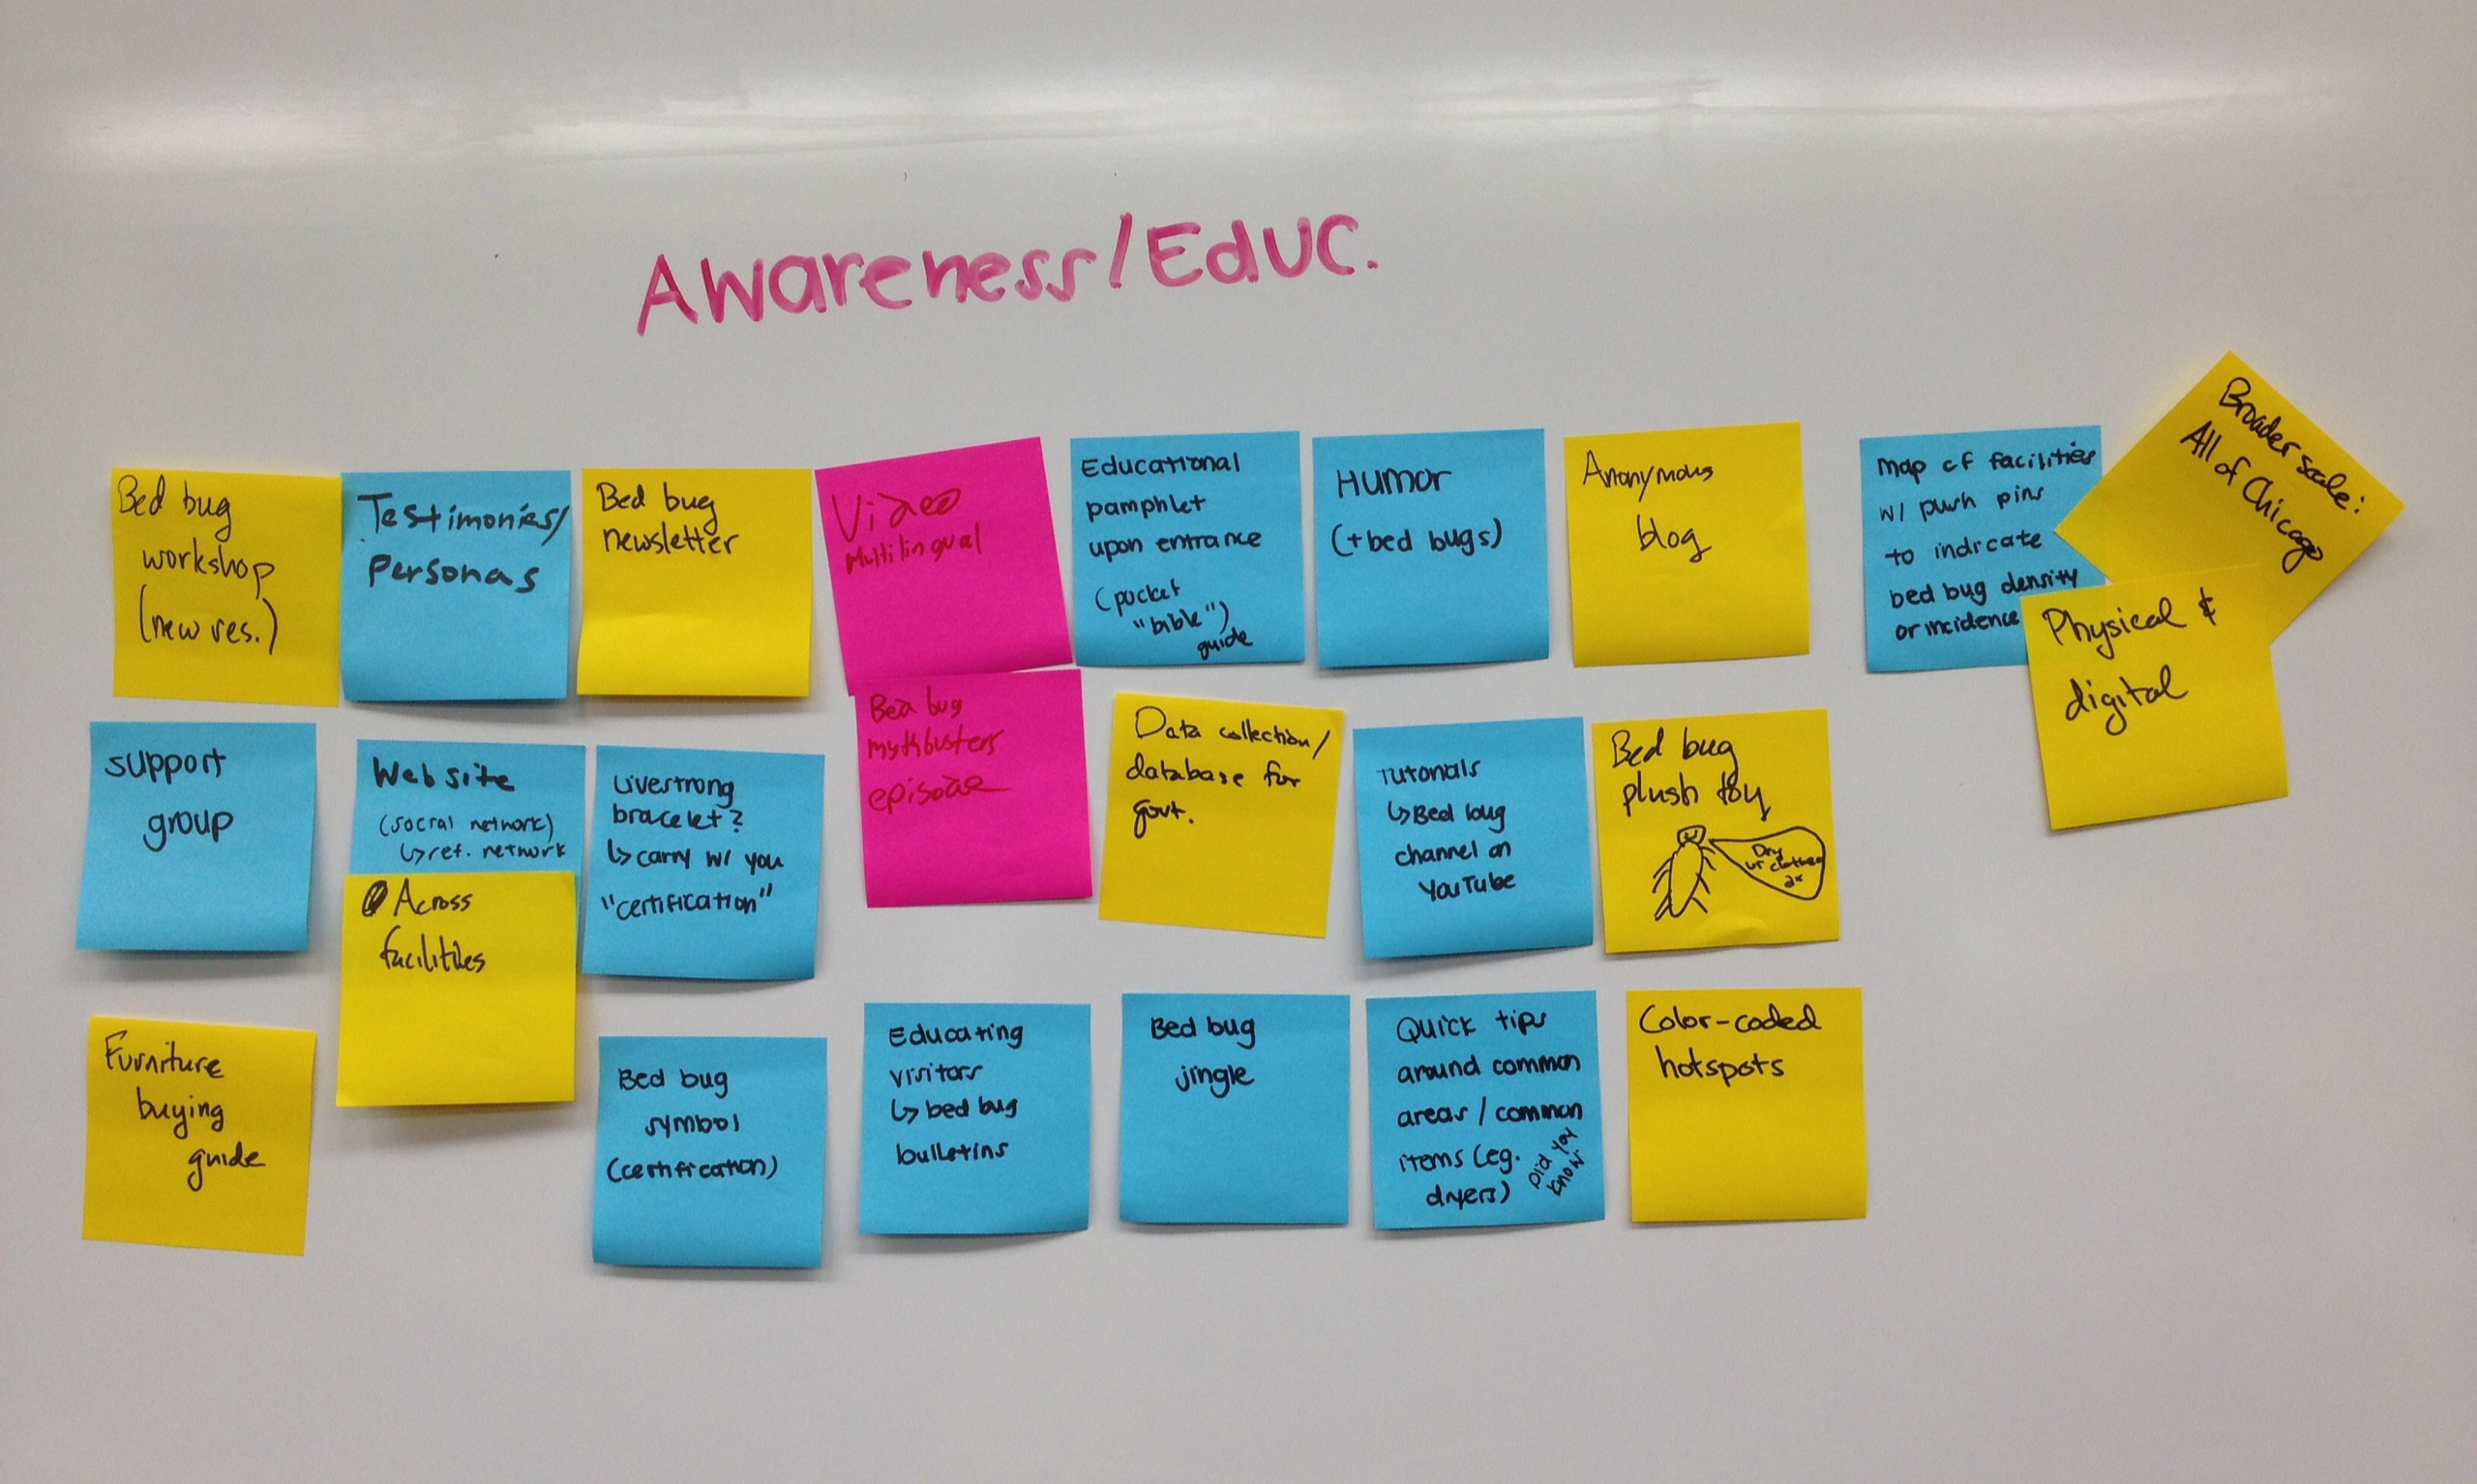 Awareness/Educ.
Bed bug
workshop
(new res.)
Testimonies/
Personas
Bed bug
newsletter
Video
Multilingual
Educational
pamphlet
upon entrance
(pocket
"bible")
guide
Humor
(+bed bugs)
Anonymous
blog
Map of facilities
w/ push pins
to indicate
bed bug density
or incidence
Broader scale:
All of Chicago
Physical &
digital
support
group
Website
(social network)
↳ref. network
Across
facilities
Livestrong
bracelet?
↳carry w/ you
"certification"
Bed bug
mythbusters
episode
Data collection/
database for
govt.
Tutorials
↳Bed bug
channel on
YouTube
Bed bug
plush toy
Dry
ur clothes
Furniture
buying
guide
Bed bug
symbol
(certification)
Educating
visitors
↳bed bug
bulletins
Bed bug
jingle
Quick tips
around common
areas/common
items (eg.
dryers)
Did you
know
Color-coded
hotspots